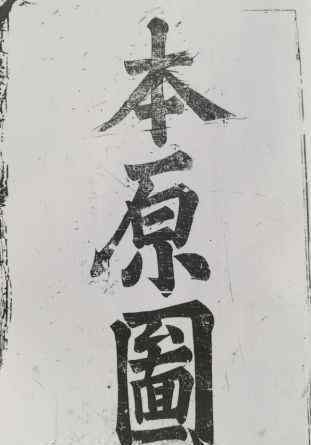 本原圖